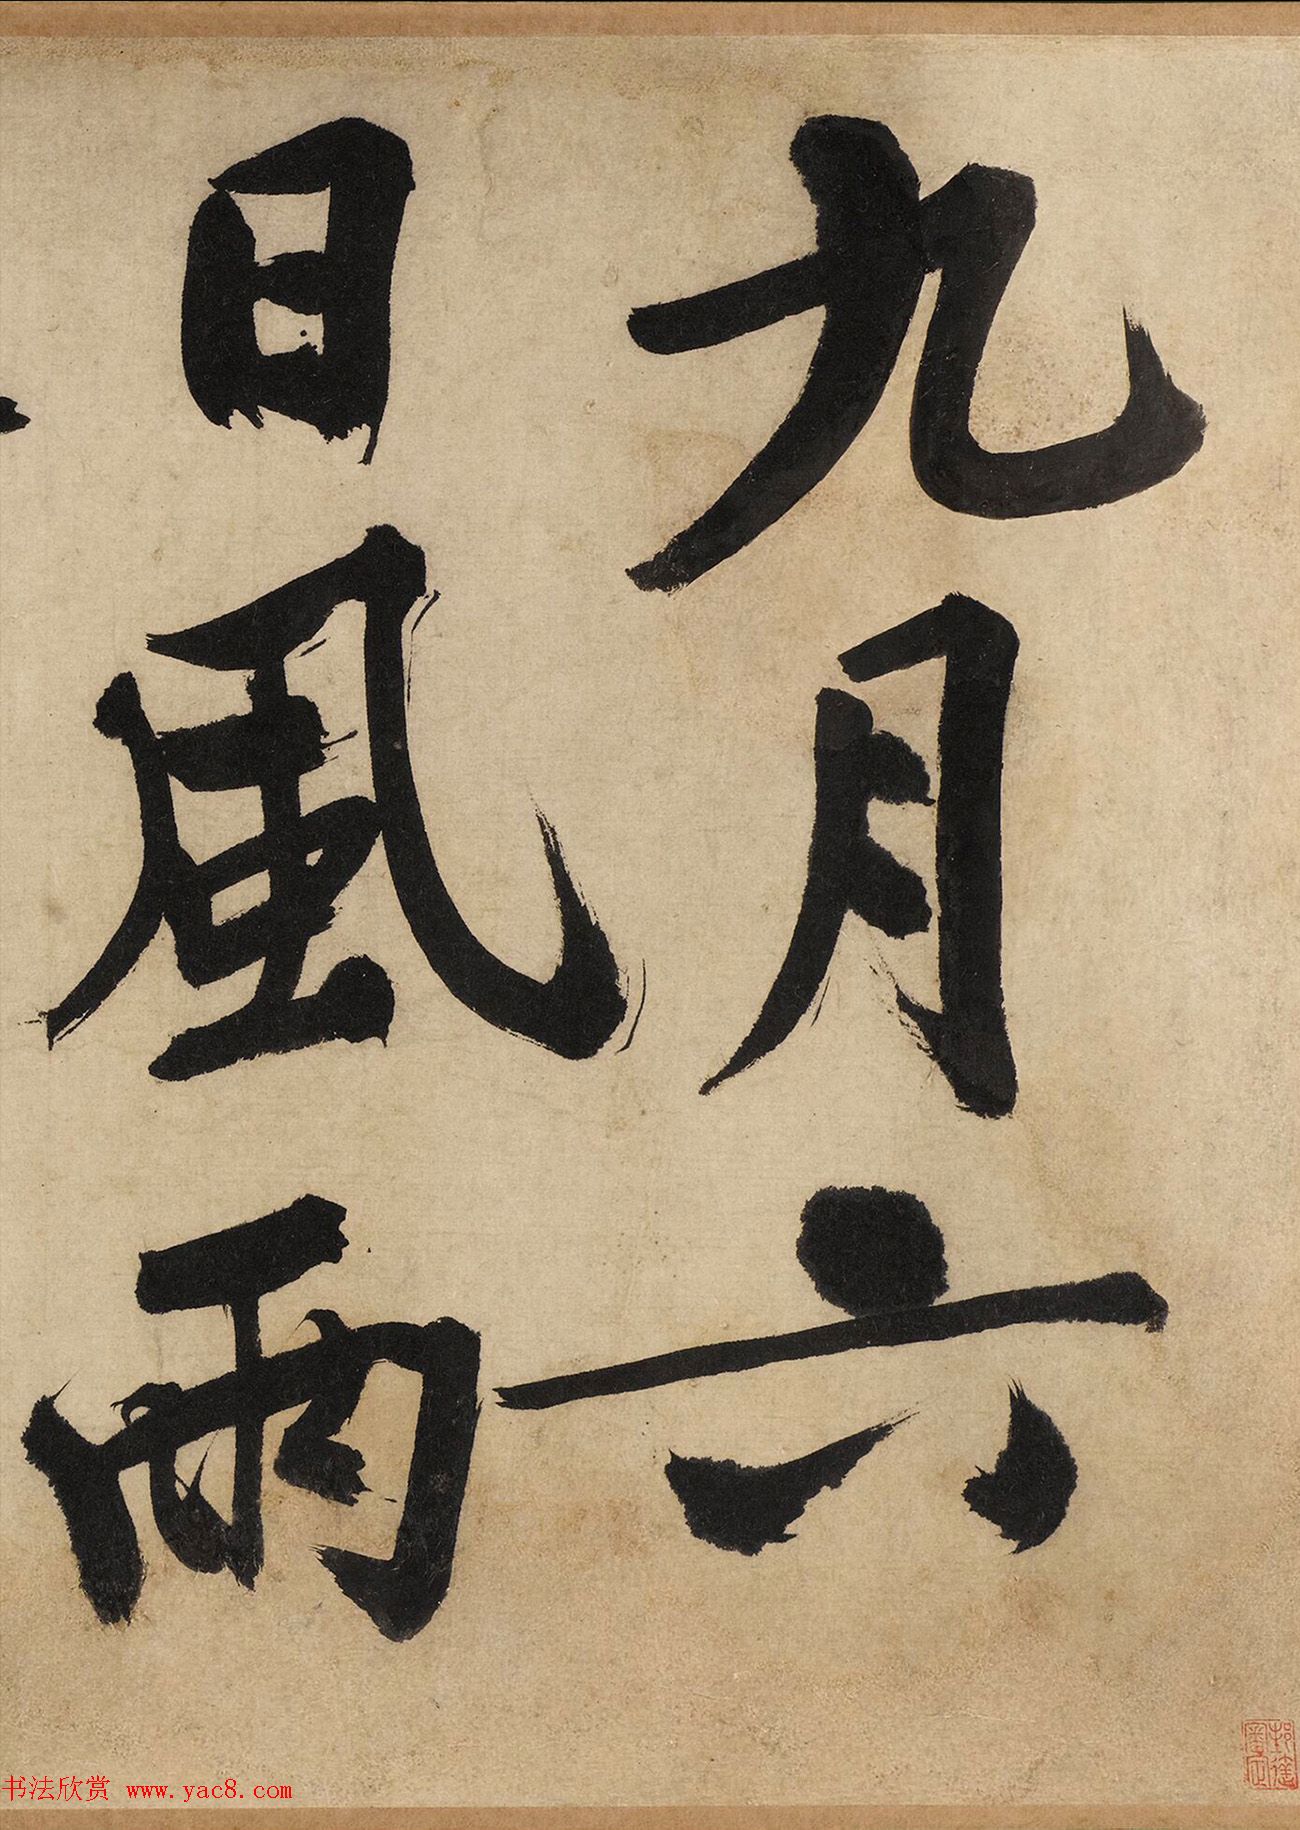 九月六
日風雨
书法欣赏 www.yac8.com